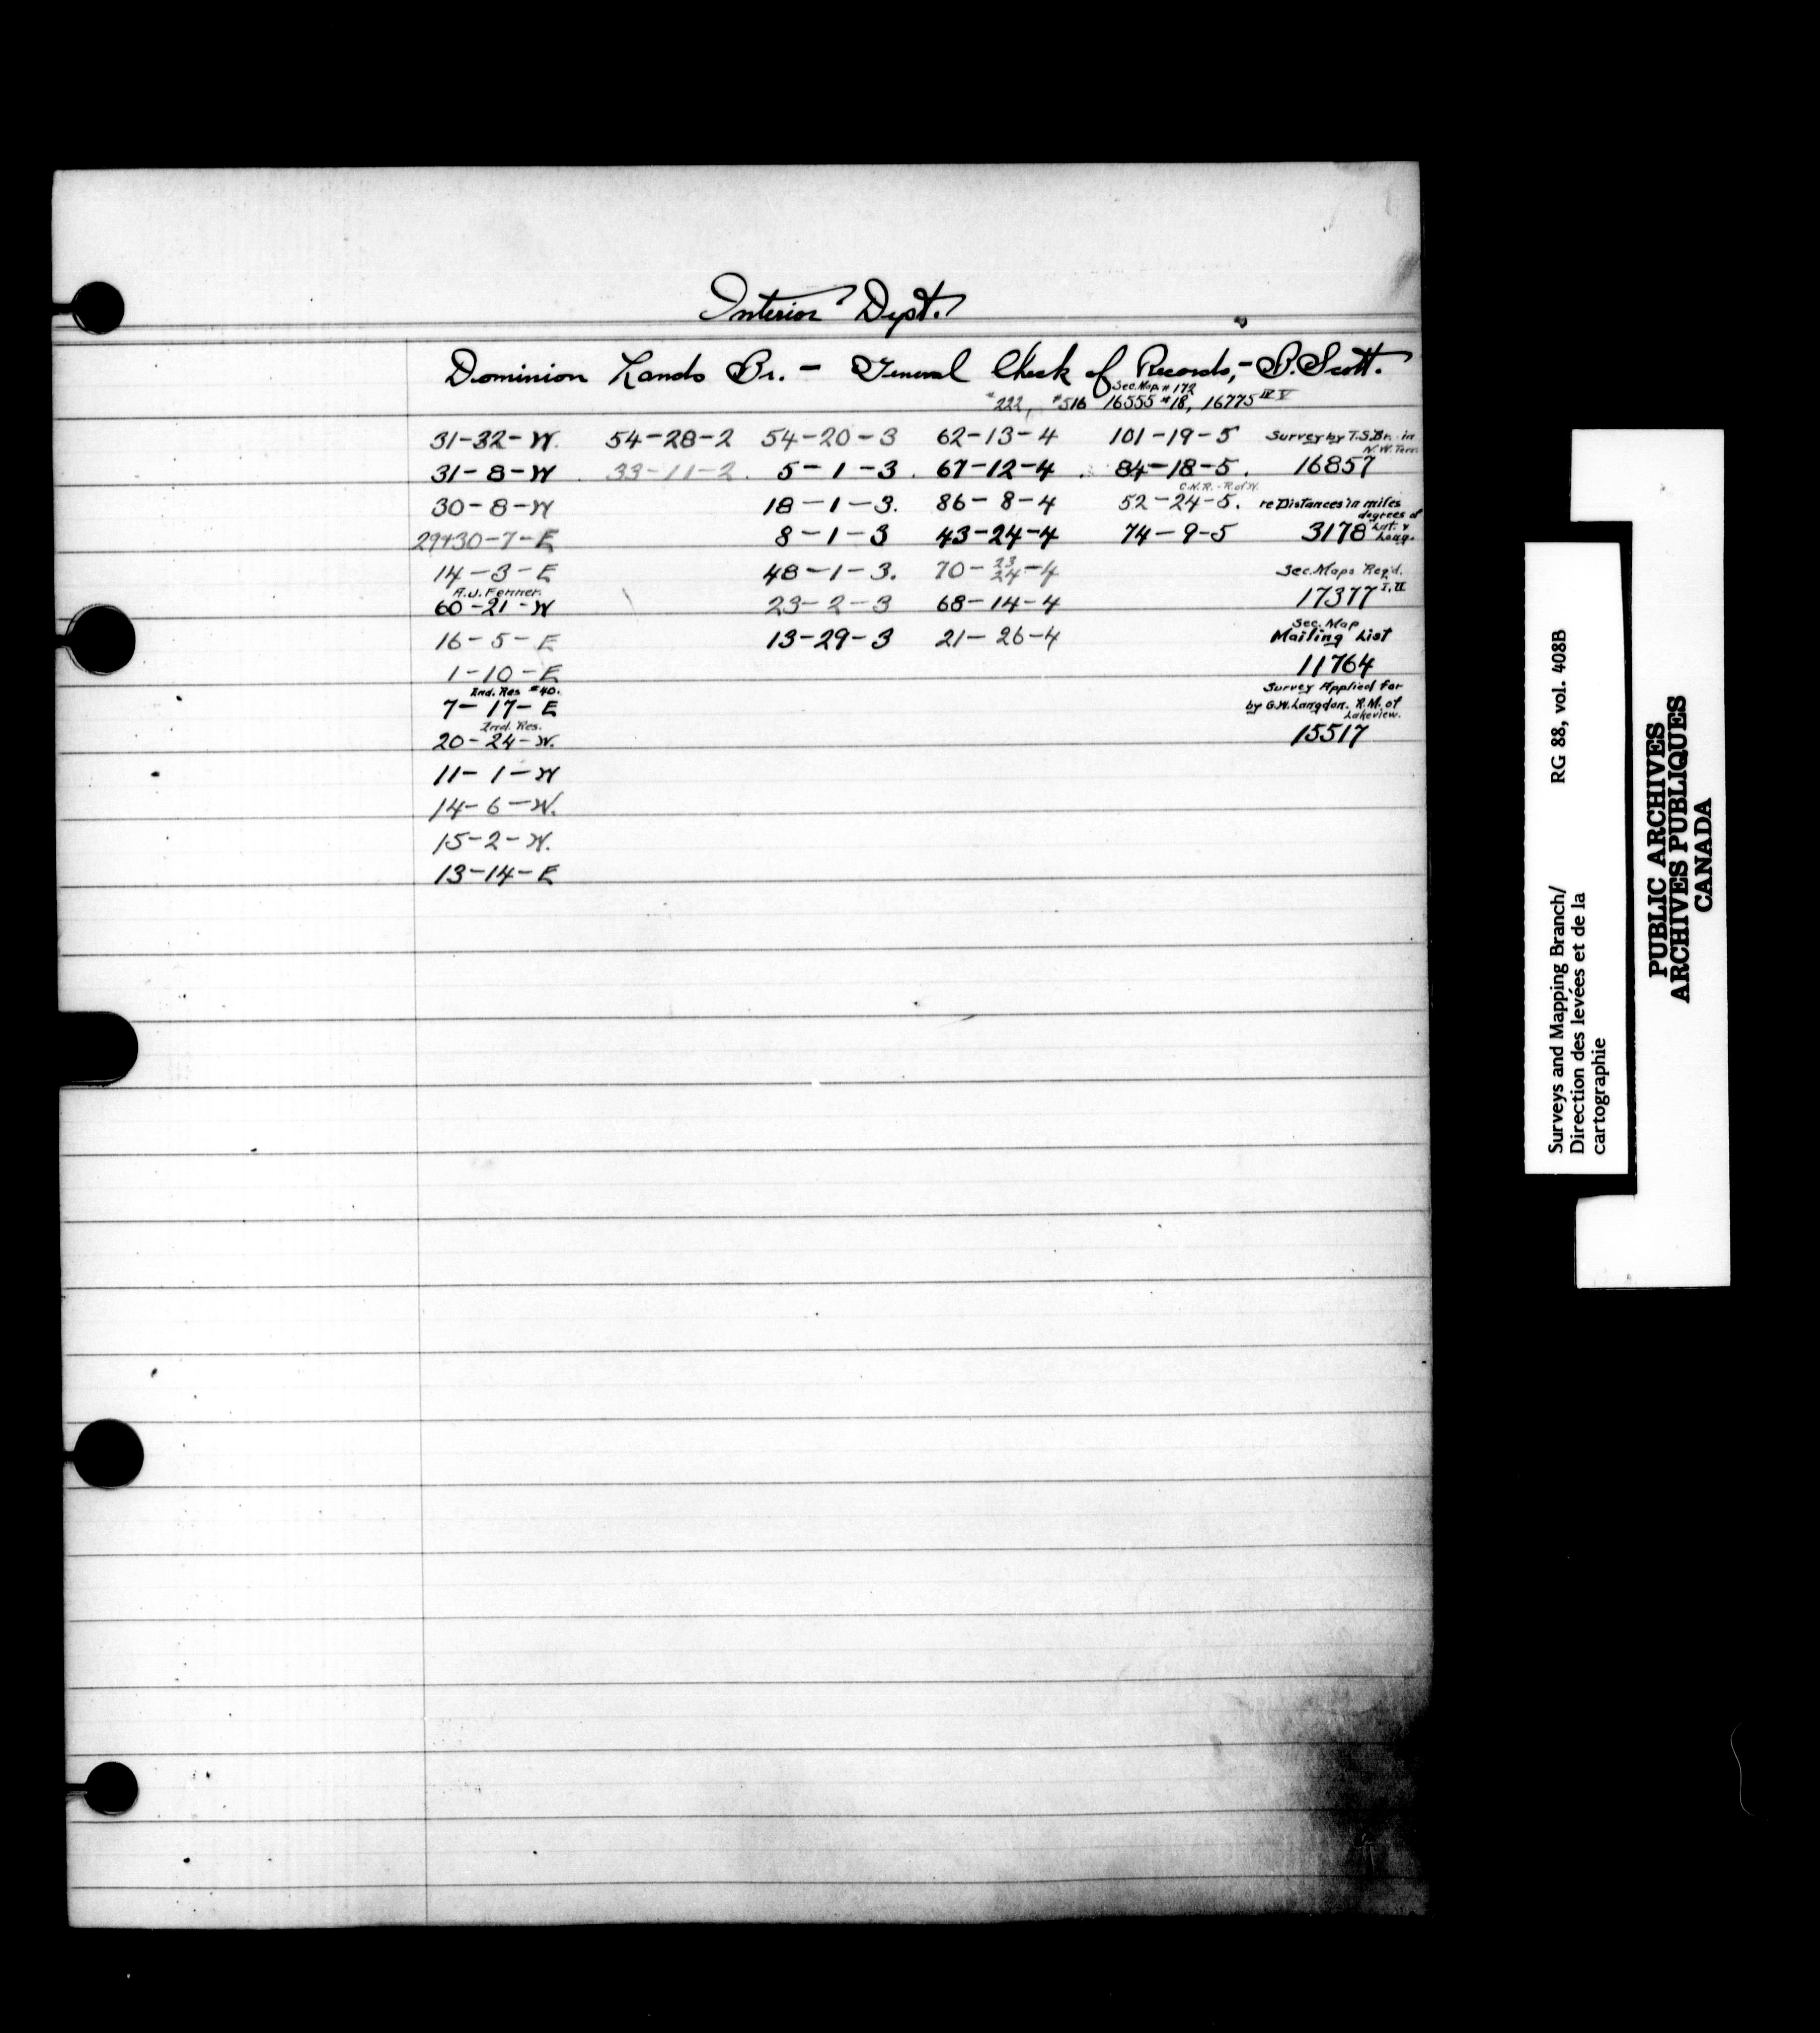 Interior Dept.
Dominion Lands Br. - General Check of Records, - B. Scott.
Sec. Map # 172
#222, #516 16555 #18, 16775 IV V
31-32-W. 54-28-2 54-20-3 62-13-4 101-19-5 Survey by T.S.Br. in
N.W. Terr.
31-8-W 33-11-2. 5-1-3. 67-12-4 84-18-5. 16857
C.N.R. - R. of W.
30-8-W 18-1-3. 86-8-4 52-24-5. re Distances in miles
degrees of
29+30-7-E 8-1-3 43-24-4 74-9-5 3178 Lat. &
Long.
14-3-E 48-1-3. 70-23/24-4 Sec. Maps Req'd.
A.J. Fenner.
60-21-W 23-2-3 68-14-4 17377 I, II
Sec. Map
16-5-E 13-29-3 21-26-4 Mailing List
1-10-E 11764
Ind. Res #40. Survey Applied for
7-17-E by G.W. Langdon. R.M. of
Lakeview.
Ind. Res.
20-24-W. 15517
11-1-W
14-6-W.
15-2-W.
13-14-E
Surveys and Mapping Branch/ RG 88, vol. 408B
Direction des levées et de la
cartographie
PUBLIC ARCHIVES
ARCHIVES PUBLIQUES
CANADA